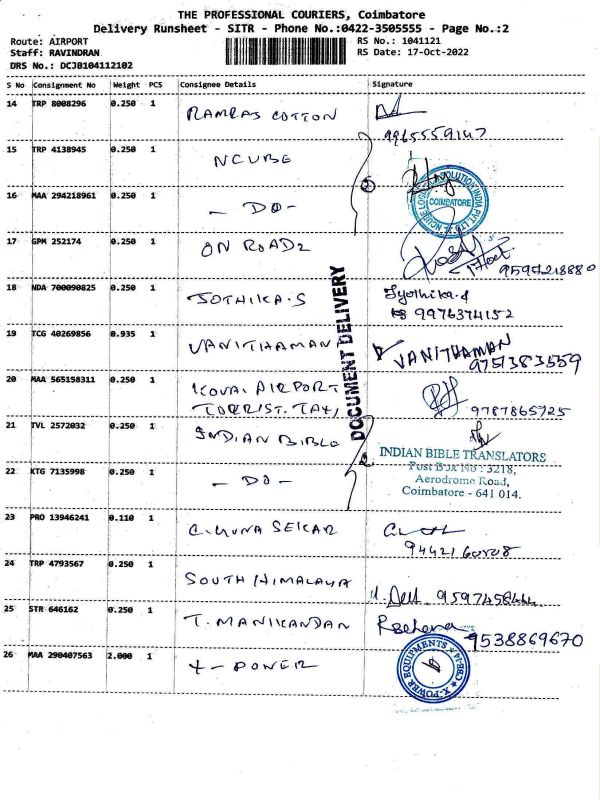 THE PROFESSIONAL COURIERS, Coimbatore
Delivery Runsheet - SITR - Phone No.:0422-3505555 - Page No.:2
Route: AIRPORT RS No.: 1041121
Staff: RAVINDRAN RS Date: 17-Oct-2022
DRS No.: DCJB104112102
S No Consignment No Weight PCS Consignee Details Signature
14 TRP 8008296 0.250 1 RAMRAS COTTON
9965559147
15 TRP 4138945 0.250 1 NCUBE
16 MAA 294218961 0.250 1 - DO -
COIMBATORE
17 GPM 252174 0.250 1 ON ROADZ
9594218880
18 NDA 700090825 0.250 1 JOTHIKA.S Jyothika.s
9976374152
19 TCG 40269856 0.935 1 VANITHAMANI VANITHAMAN
9751383559
DOCUMENT DELIVERY
20 MAA 565158311 0.250 1 KOVAI AIRPORT
TORRIST. TAXI 9787865725
21 TVL 2572032 0.250 1 INDIAN BIBLE
INDIAN BIBLE TRANSLATORS
Post Box No : 3218,
22 KTG 7135998 0.250 1 - DO - Aerodrome Road,
Coimbatore - 641 014.
23 PRO 13946241 0.110 1 C. GUNA SEKAR
24 TRP 4793567 0.250 1 SOUTH HIMALAYA
25 STR 646162 0.250 1 T. MANIKANDAN
9538869670
26 MAA 290407563 2.000 1 X - POWER
X-POWER EQUIPMENTS
CBE-14